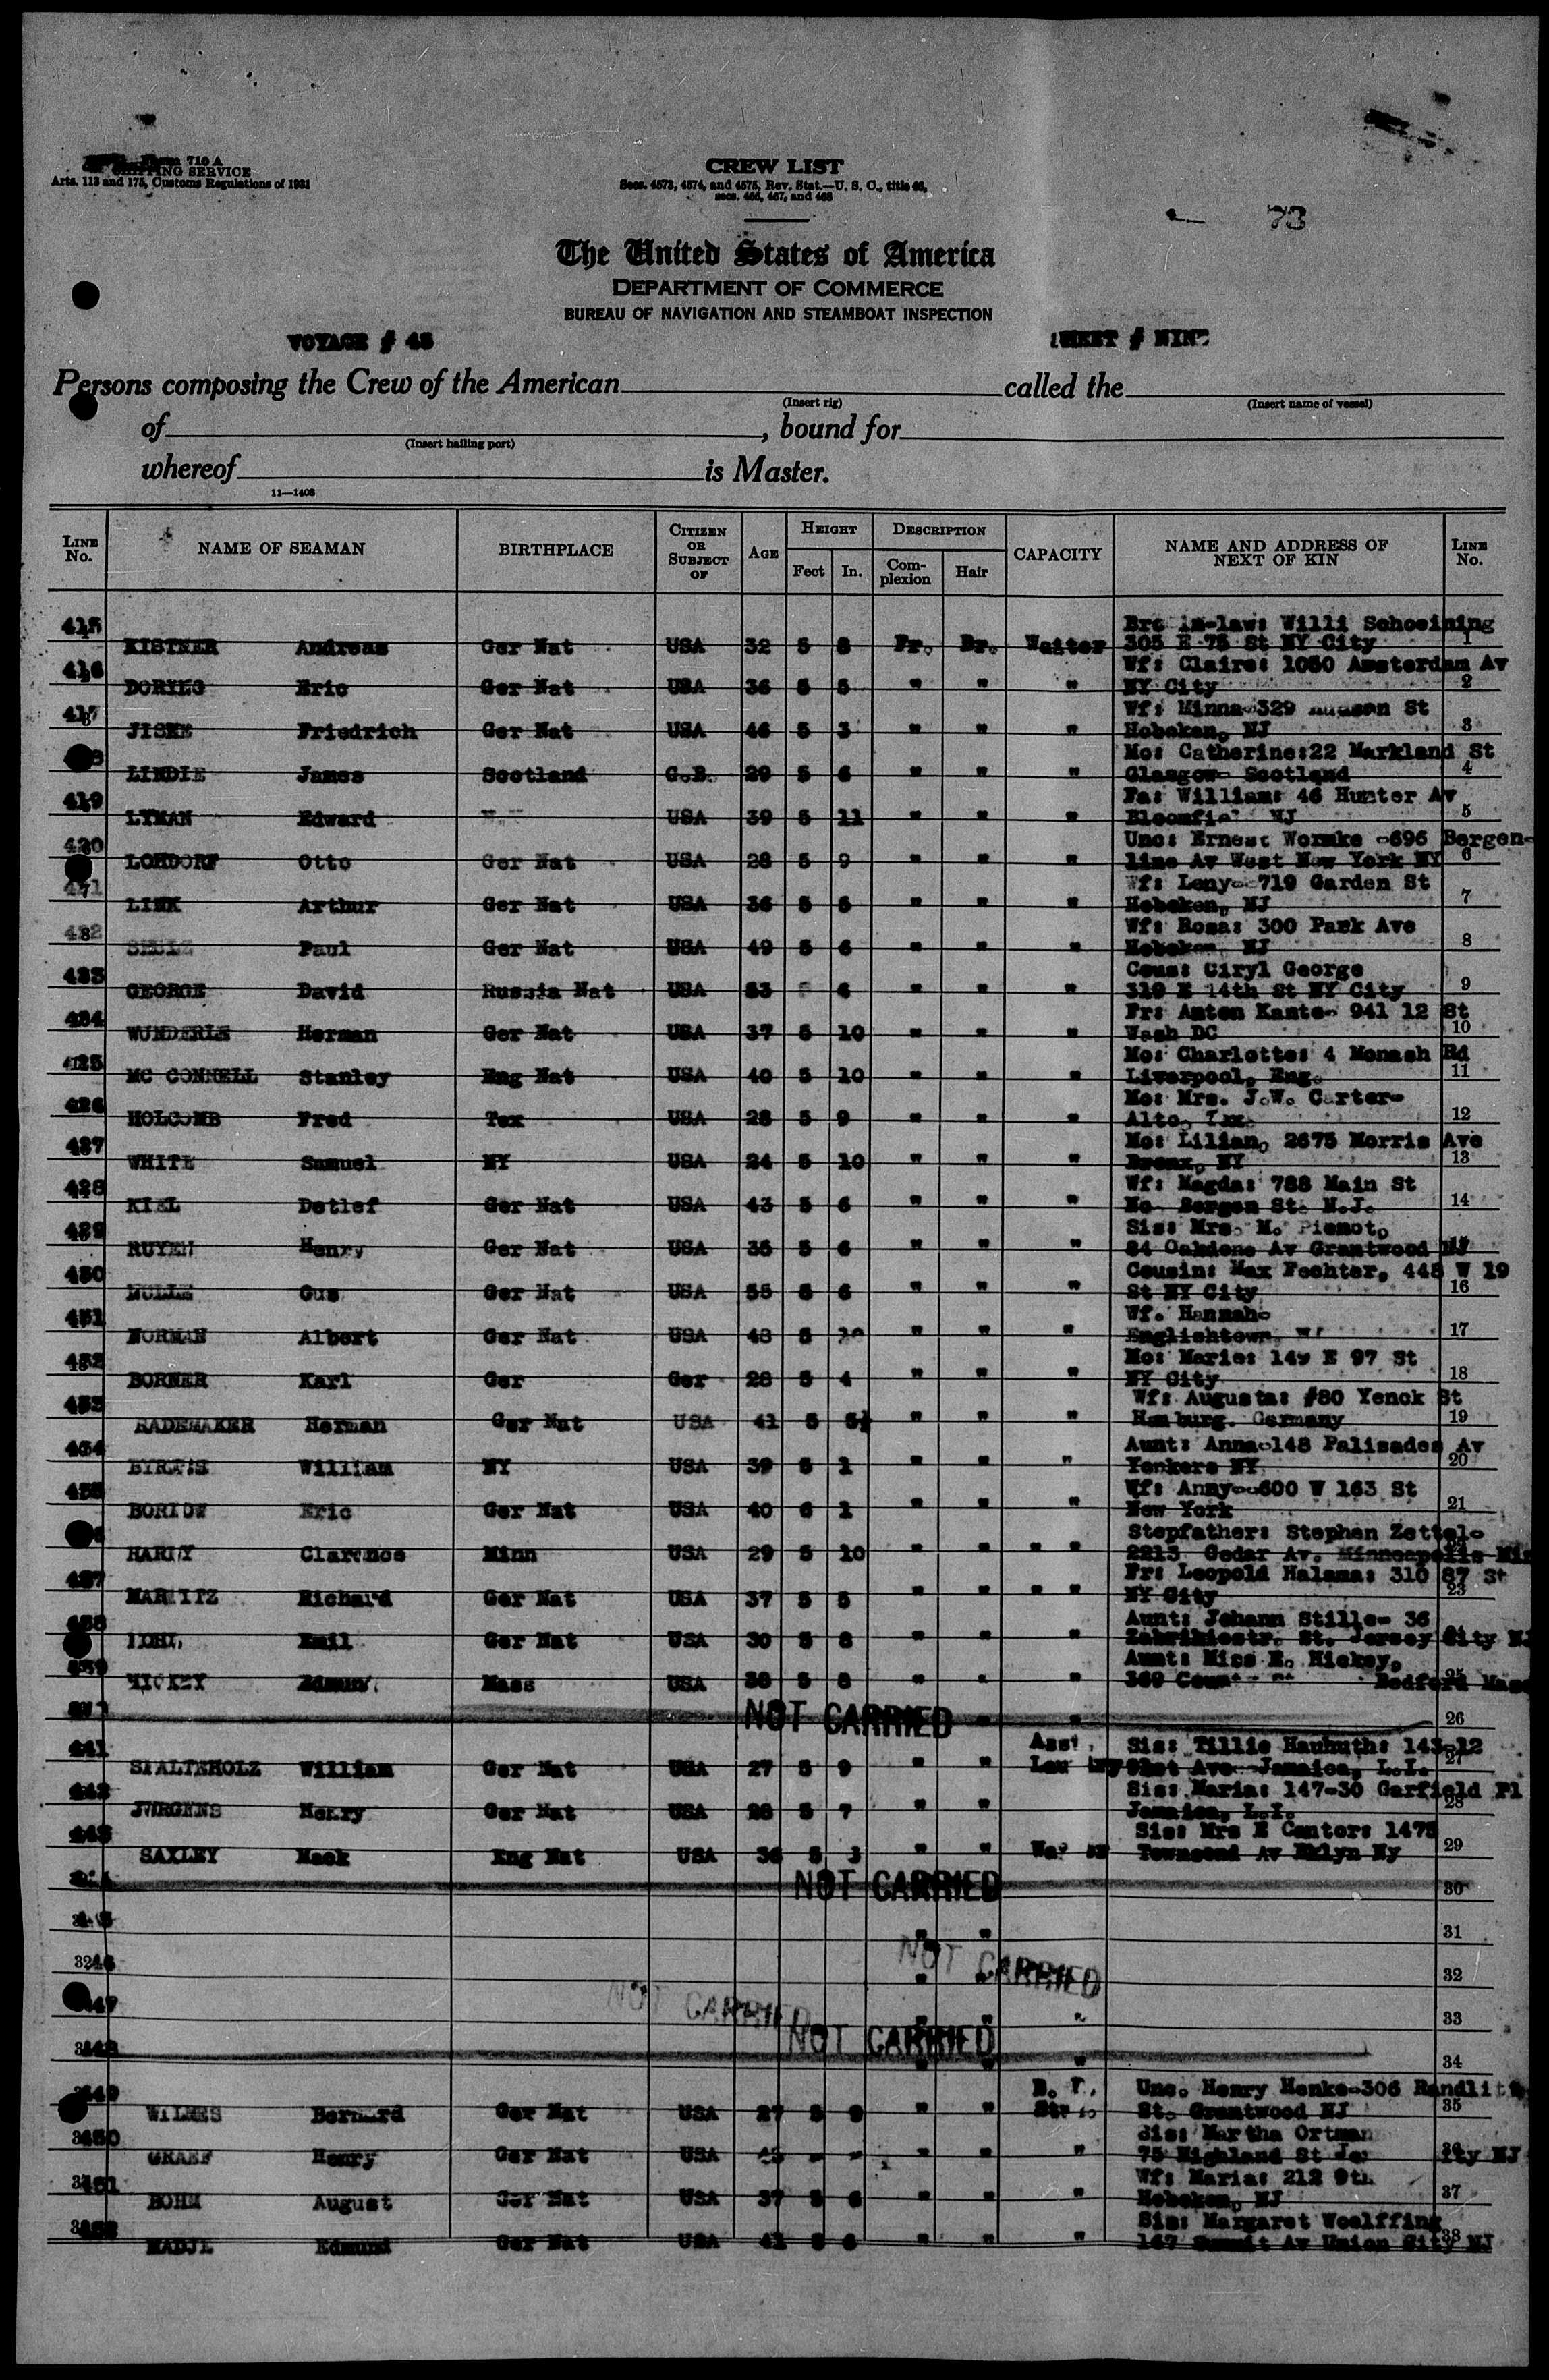 Form 710 A
SHIPPING SERVICE
Arts. 113 and 175, Customs Regulations of 1931
CREW LIST
Secs. 4573, 4574, and 4575, Rev. Stat.—U. S. C., title 46,
secs. 465, 467, and 468
73
The United States of America
DEPARTMENT OF COMMERCE
BUREAU OF NAVIGATION AND STEAMBOAT INSPECTION
VOYAGE # 45 SHEET # NINE
Persons composing the Crew of the American called the
(Insert rig) (Insert name of vessel)
of , bound for
(Insert hailing port)
whereof is Master.
11—1408
LINE No. NAME OF SEAMAN BIRTHPLACE CITIZEN OR SUBJECT OF AGE HEIGHT Feet In. DESCRIPTION Complexion Hair CAPACITY NAME AND ADDRESS OF NEXT OF KIN LINE No.
Bro in-law: Willi Schoeining
415 KISTNER Andreas Ger Nat USA 32 5 8 Fr. Br. Waiter 305 E 75 St NY City 1
Wf: Claire: 1050 Amsterdam Av
416 Eric Ger Nat USA 36 5 5 " " " NY City 2
Wf: Minna-329 Hudson St
417 JISKE Friedrich Ger Nat USA 46 5 3 " " " Hoboken, NJ 3
Mo: Catherine:22 Markland St
LINDIE James Scotland G.B. 29 5 6 " " " Glasgow- Scotland 4
Fa: William: 46 Hunter Av
419 LYMAN Edward USA 39 5 11 " " " NJ 5
Unc: Ernest Wormke -696 Bergen-
420 LOHDORF Otto Ger Nat USA 28 5 9 " " " line Av West New York NY 6
Wf: Leny--719 Garden St
421 LINK Arthur Ger Nat USA 36 5 5 " " " Hoboken, NJ 7
Wf: Rosa: 300 Park Ave
422 Paul Ger Nat USA 49 5 6 " " " Hoboken NJ 8
Cous: Ciryl George
423 GEORGE David Russia Nat USA 53 6 " " " 319 E 14th St NY City 9
Fr: Anton Kante- 941 12 St
424 WUNDERLE Herman Ger Nat USA 37 5 10 " " " Wash DC 10
Mo: Charlotte: 4 Monash Rd
425 MC CONNELL Stanley Eng Nat USA 40 5 10 " " " Liverpool, Eng. 11
Mo: Mrs. J.W. Carter-
426 HOLCOMB Fred Tex USA 28 5 9 " " " Alto, Tex. 12
Mo: Lilian, 2675 Morris Ave
427 WHITE Samuel NY USA 24 5 10 " " " Bronx, NY 13
Wf: Magda: 788 Main St
428 KIEL Detlef Ger Nat USA 43 5 6 " " " No Bergen St. N.J. 14
Sis: Mrs. M. Piemot,
429 Henry Ger Nat USA 35 5 6 " " " 84 Oakdene Av Grantwood NJ
Cousin: Max Fechter, 448 W 19
430 Gus Ger Nat USA 55 5 6 " " " St NY City 16
Wf. Hannah-
431 NORMAN Albert Ger Nat USA 43 5 10 " " " Englishtown 17
Mo: Marie: 149 E 97 St
432 BORNER Karl Ger Ger 28 5 4 " " " NY City 18
Wf: Augusta: #80 Yenck St
433 RADEMAKER Herman Ger Nat USA 41 5 5½ " " " Hamburg. Germany 19
Aunt: Anna-148 Palisades Av
434 William NY USA 39 5 1 " " " Yonkers NY 20
Wf: Anny--600 W 163 St
435 BORIOW Eric Ger Nat USA 40 6 1 " " " New York 21
Stepfather: Stephen Zettel-
Clarence Minn USA 29 5 10 " " " " 2213 Cedar Av. Minneapolis
Fr: Leopold Halama: 310 87 St
437 Richard Ger Nat USA 37 5 5 " " " " NY City 23
Aunt: Johann Stille- 36
438 Emil Ger Nat USA 30 5 8 " " " St. Jersey City NJ
Aunt: Miss E. Hickey,
439 HICKEY Mass USA 38 5 8 " " " 369 Bedford Mass 25
NOT CARRIED " " 26
Asst. Sis: Tillie Hauhuth: 143-12
441 SPALTEHOLZ William Ger Nat USA 27 5 9 " " Ave--Jamaica, L.I. 27
Sis: Maria: 147-30 Garfield Pl
442 JURGENS Henry Ger Nat USA 28 5 7 " " Jamaica, L.I. 28
Sis: Mrs E Cantor: 1475
443 SAXLEY Mack Eng Nat USA 36 5 3 " " Townsend Av Bklyn Ny 29
NOT CARRIED 30
" " 31
NOT CARRIED
" " 32
NOT CARRIED
447 " " " 33
NOT CARRIED
448 " " " 34
Unc. Henry Henke-306
449 WILMES Bernard Ger Nat USA 27 5 9 " " St. Grantwood NJ 35
Sis: Martha Ortman
450 GRAEF Henry Ger Nat USA " " " 75 Highland St ity NJ
Wf: Maria: 212 9th
451 BOHM August Ger Nat USA 37 5 6 " " " Hoboken, NJ 37
Sis: Margaret Woelffing
452 Edmund Ger Nat USA 41 5 6 " " " 167 Summit Av Union City NJ 38